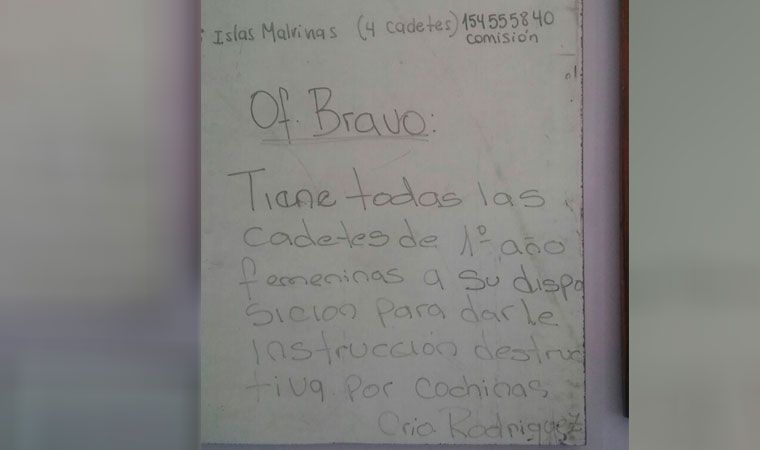 : Islas Malvinas (4 cadetes) 154555840
comisión
Of. Bravo:
Tiene todas las
cadetes de 1º año
femeninas a su dispo
sicion para darle
instrucción destruc
tiva por cochinas
Crio Rodriguez